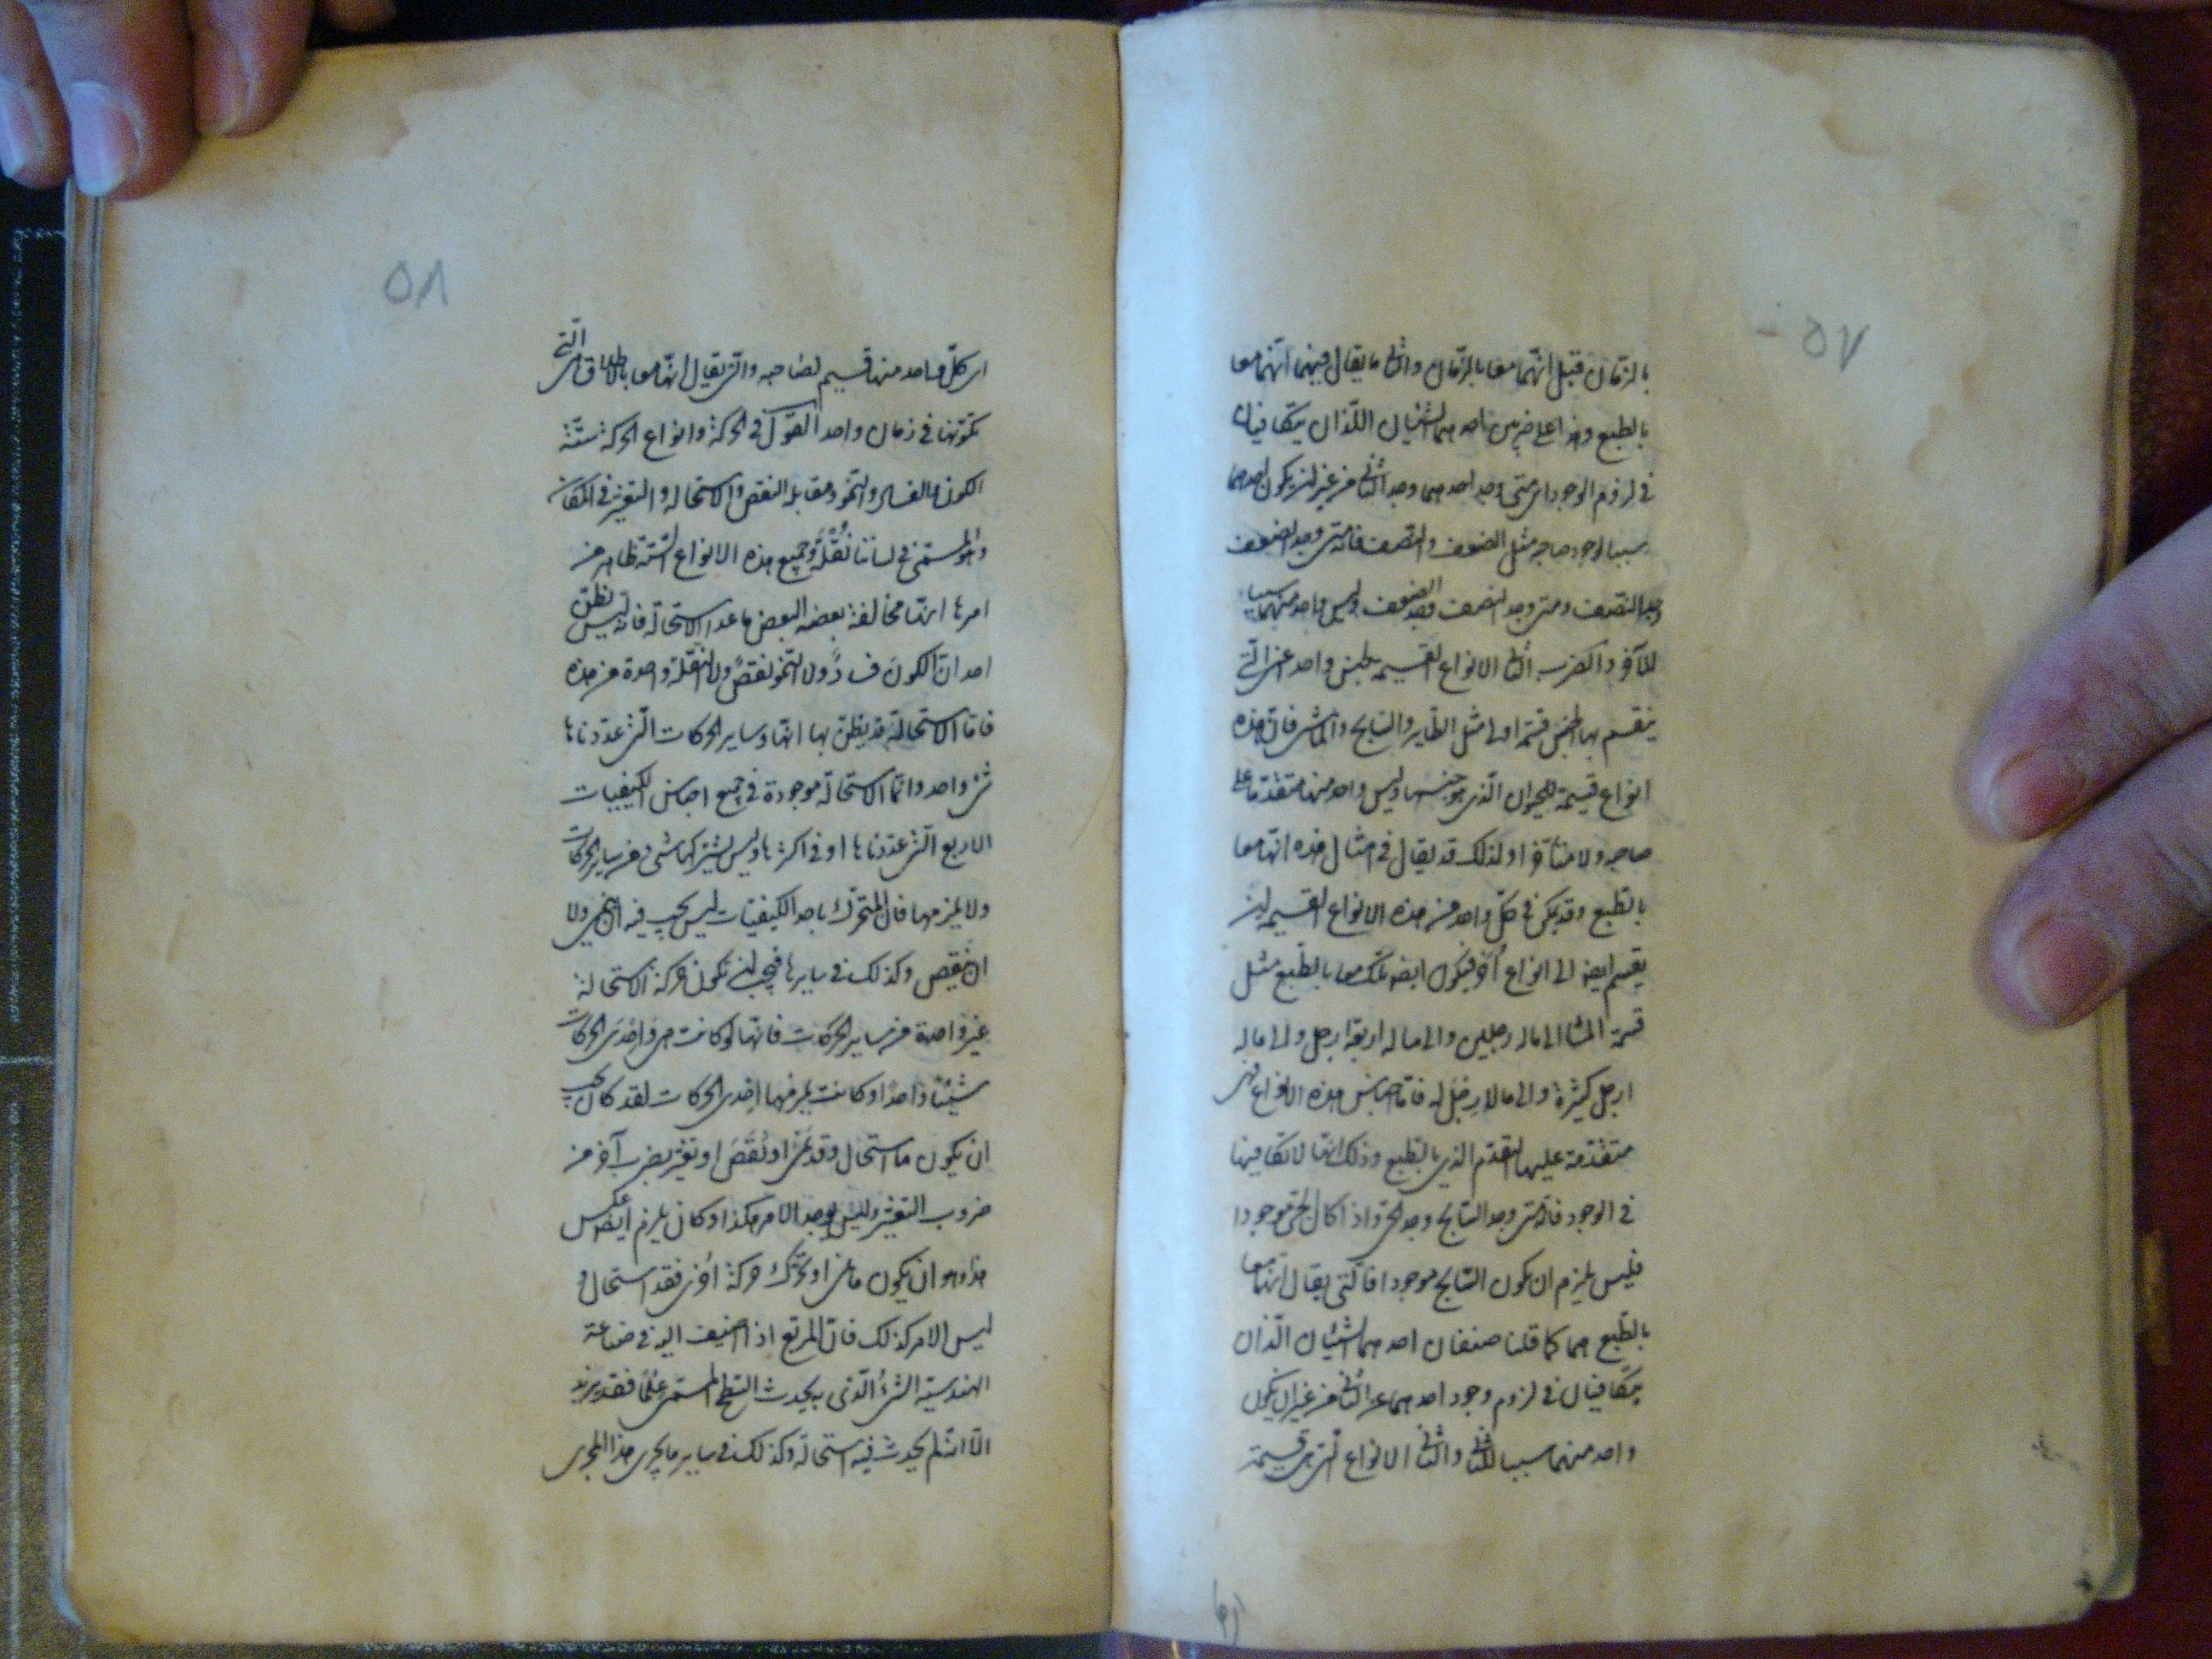 ٥٧
بالزمان قيل انهما معا بالزمان والثانى ما يقال فيهما انهما معا
بالطبع وهذا على ضربين احدهما الشيئان اللذان يتكافيان
فى لزوم الوجود اى متى وجد احدهما وجد الثانى من غير ان يكون احدهما
سببا لوجود صاحبه مثل الضعف والنصف فانه متى وجد الضعف
وجد النصف ومتى وجد النصف وجد الضعف وليس واحد منهما سببا
للآخر والضرب الثانى الانواع القسيمة لجنس واحد اعنى التى
ينقسم بها الجنس قسمة اولى مثل الطاير والسابح والماشى فان هذه
انواع قسيمة للحيوان الذى هو جنسها وليس واحد منها متقدما على
صاحبه ولا متأخرا ولذلك قد يقال فى امثال هذه انها معا
بالطبع وقد يمكن فى كل واحد من هذه الانواع القسيمة ان
يقسم ايضا الى انواع أخر فيكون ايضا تلك معا بالطبع مثل
قسمة المشا الى ماله رجلين والى ما له اربعة ارجل والى ماله
ارجل كثيرة والى مالا رجل له فاما اجناس هذه الانواع فهى
متقدمة عليها التقدم الذى بالطبع وذلك انها لا تكافيها
فى الوجود فانه متى وجد السابح وجد الحى واذا كان الحى موجودا
فليس يلزم ان يكون السابح موجودا فاللتى يقال انها معا
بالطبع هما كما قلنا صنفان احدهما الشيئان الذان
يتكافيان فى لزوم وجود احدهما عن الثانى من غير ان يكون
واحد منهما سببا للثانى والثانى الانواع التى هى قسيمة
٥٨
اى كل واحد منها قسيم لصاحبه والتى يقال انها معا باطلاق هى التى
تكونها فى زمان واحد القول فى الحركة وانواع الحركة ستة
الكون والفساد والنمو ومقابله النقص والاستحالة والتغير فى المكان
وهو المسمى فى لساننا نُقْلَةً وجميع هذه الانواع الستة ظاهر من
امرها انها مخالفة بعضه البعض ماعدا الاستحالة فانه ليس يظن
احد ان الكون فسادٌ ولا النمو نقصٌ ولا النقلة واحدة من هذه
فاما الاستحالة قد يظن بها انها وساير الحركات التى عددناها
شى واحد وانما الاستحالة موجودة فى جميع اجناس الكيفيات
الاربع التى عددناها او فى اكثرها وليس يشتركها شى من ساير الحركات
ولا يلزمها فان المتحرك باحد الكيفيات ليس يجب فيه ان ينمى ولا
ان ينقص وكذلك فى سايرها فيجب ان تكون حركة الاستحالة
غير واحدة من ساير الحركات فانها لو كانت هى واِحْدَى الحركات
شيئًا واحدًا او كانت يلزمها اِحْدى الحركات لقد كان يجب
ان يكون ما استحال وقد نمى او نَقَصَ او تغير بضرب آخر من
ضروب التغير وليس يوجد الامر هكذا وكان يلزم ايضا عكس
هذا وهو ان يكون ما نمى او تحرك حركة اُخرى فقد استحال و
ليس الامر كذلك فان المربع اذا اضيف اليه فى صناعة
الهندسية الشىُ الذى به يحدث السطح المسمى عَلَمًا فقد يزيد
الا انه لم يحدث فيه استحالة وكذلك فى ساير ما يجرى هذا المجرى